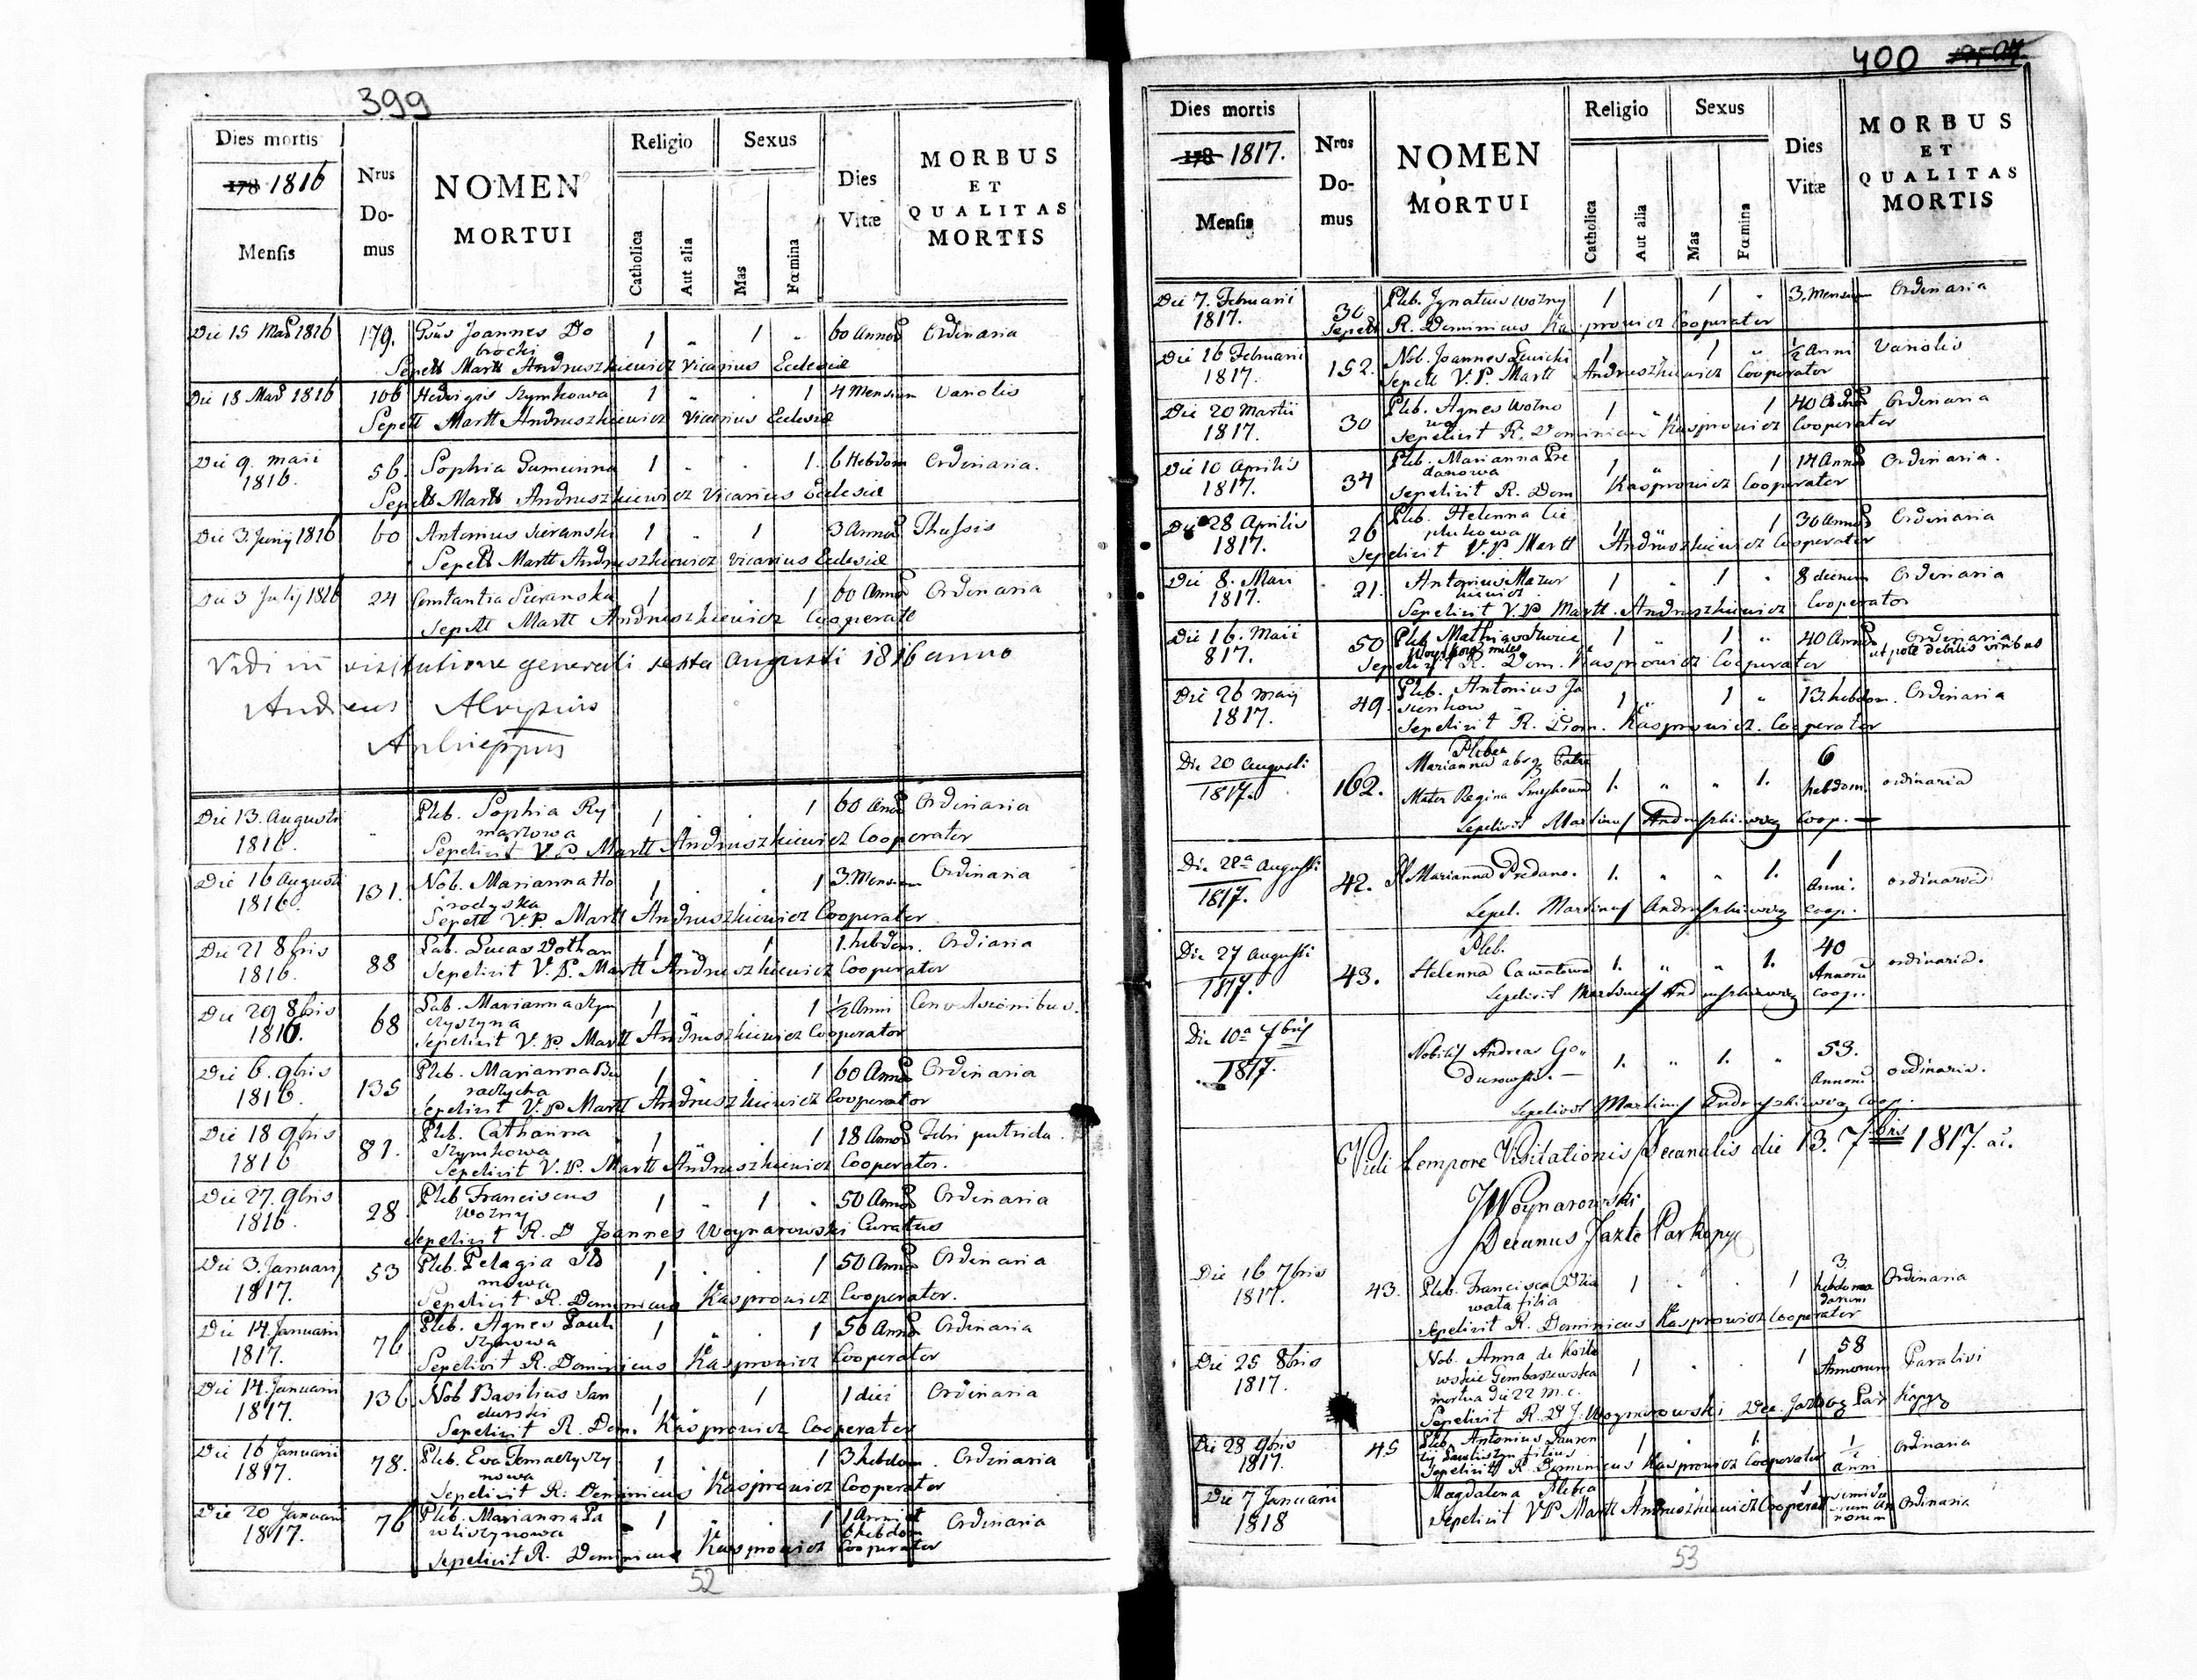 399
Dies mortis
178 1816
Mensis
Nrus Do- mus
NOMEN MORTUI
Religio
Catholica
Aut alia
Sexus
Mas
Fœmina
Dies Vitæ
MORBUS ET QUALITAS MORTIS
Die 15 1816 179. Joannes Do 1 " 1 " 60 Annor Ordinaria
brocki
Sepelt Martt Andruszkiewicz Vicarius Eclesiæ
Die 18 1816 106 Hedvigis Szymkowa 1 " . 1 4 Mensium Variolis
Sepelt Martt Andruszkiewicz Vicarius Eclesiæ
Die 9 Maii 56. Sophia 1 . . 1. 6 Hebdom Ordinaria.
1816.
Sepelt Martt Andruszkiewicz Vicarius Eclesiæ
Die 3. Junij 1816 60 Antonius Sieranski 1 . 1 3 Annor
Sepelt Martt Andruszkiewicz Vicarius Eclesiæ
Die 3 Julij 1816 24 Constantia Sieranska 1 . . 1 60 Annor Ordinaria
Sepelt Martt Andruszkiewicz Cooperatt
Vidi in visitatione generali sexta Augusti 1816 anno
Andreas Aloysius
Die 13. Augusti Pleb. Sophia Ry 1 . . 1 60 Ordinaria
1816. marzowa
Sepelivit V. P. Martt Andruszkiewicz Cooperator
Die 16 Augusti 131. Nob. Marianna Ho 1 . . 1 3. Mensium Ordinaria
1816. rodyska
Sepelt V. P. Martt Andruszkiewicz Cooperator
Die 21 8bris 88 Lab. Lucas Dothan 1 " 1 1. hebdom. Ordiaria
1816.
Sepelivit V. P. Martt Andruszkiewicz Cooperator
Die 29 8bris 68 Lab. Marianna 1 " . 1 ½ Anni Convulsionibus.
1816.
Sepelivit V. P. Martt Andruszkiewicz Cooperator
Die 6. 9bris 135 Pleb. Marianna Bu 1 " . 1 60 Annor Ordinaria
1816. radzycha
Sepelivit V. P. Martt Andruszkiewicz Cooperator
Die 18 9bris 81. Pleb. Catharina 1 " . 1 18 Annor Febri putrida.
1816 Szymkowa
Sepelivit V. P. Martt Andruszkiewicz Cooperator.
Die 27. 9bris 28. Pleb Franciscus 1 " 1 . 50 Annor Ordinaria
1816. Wozny
Sepelivit R. D Joannes Woynarowski Curatus
Die 3. Januarij 53 Pleb. Pelagia 1 . . 1 50 Annor Ordinaria
1817.
Sepelivit R. Dominicus Kasprowicz Cooperator.
Die 14. Januarii 76 Pleb. Agnes 1 " . 1 56 Annor Ordinaria
1817.
Sepelivit R. Dominicus Kasprowicz Cooperator
Die 14. Januarii 136 Nob Basilius San 1 1 1 diei Ordinaria
1817. durski
Sepelivit R. Dom. Kasprowicz Cooperator
Die 16 Januarii 78. Pleb. Eva 1 . . 1 3 hebdom. Ordinaria
1817. nowa
Sepelivit R. Dominicus Kasprowicz Cooperator
Die 20 Januarii 76 Pleb. Marianna Pa 1 " . 1 1 Anni et Ordinaria
1817. wliszynowa 6 hebdom
Sepelivit R. Dominicus Kasprowicz Cooperator
52
400
Dies mortis
178 1817.
Mensis
Nros Do- mus
NOMEN MORTUI
Religio
Catholica
Aut alia
Sexus
Mas
Fœmina
Dies Vitæ
MORBUS ET QUALITAS MORTIS
Die 7. Februarii 30 Pleb. Ignatius Wozny 1 1 " 3. Mensium Ordinaria
1817.
Sepelt R. Dominicus Kasprowicz Cooperator
Die 16 Februarii 152. Nob. Joannes Lewicki 1 1 " ½ Anni Variolis
1817.
Sepelt V. P. Martt Andruszkiewicz Cooperator
Die 20 Martii 30 Pleb. Agnes Wozno 1 " 1 40 Annor Ordinaria
1817. wa
Sepelivit R. Dominicus Kasprowicz Cooperator
Die 10 Aprilis 34 Pleb. Marianna Pre 1 " 1 14 Annor Ordinaria.
1817. danowa
Sepelivit R. Dom Kasprowicz Cooperator
Die 28 Aprilis 26 Pleb. Helenna Cie 1 1 30 Annor Ordinaria
1817. plukowa
Sepelivit V. P. Martt Andruszkiewicz Cooperator
Die 8. Maii 21. Antonius Mazur 1 " 1 " 8 dierum Ordinaria
1817. kiewicz
Sepelivit V. P. Martt. Andruszkiewicz Cooperator
Die 16. Maii 50 Pleb Mathias 1 " 1 " 40 Annor Ordinaria
817. miles ut pote debilis viribus
Sepelivit R. Dom. Kasprowicz Cooperator
Die 26 Maij 49. Pleb. Antonius Ja 1 " 1 " 13 hebdom. Ordinaria
1817. sienkow
Sepelivit R. Dom. Kasprowicz. Cooperator
Die 20 Augusti 162. Plebea 6
1817. Marianna absq Patre
Mater Regina Smykowa 1. " " 1. hebdom. ordinaria
Sepelivit Martinus Andruszkiewicz Coop.
Die 22a Augusti 42. Pl Marianna Predano. 1. " " 1. 1 Anni. ordinaria
1817.
Sepel. Martinus Andruszkiewicz coop.
Die 27 Augusti 43. Pleb. 40
1817. Helenna 1. " " 1. Annorū ordinaria.
Sepelivit Martinus Andruszkiewicz coop.
Die 10a 7bris Nobilis Andreas Go" 1. " 1. " 53. Annorū ordinaria.
1817. durowski.
Sepelivit Martinus Andruszkiewicz Coop.
Vidi tempore Visitationis Decanalis die 13. 7bris 1817. a.
J Woynarowski
Decanus
Die 16 7bris 43. Pleb. Francisca 1 " . 1 3 hebdoma darum Ordinaria
1817. wata filia
Sepelivit R. Dominicus Kasprowicz Cooperator
Die 25 8bris Nob. Anna de Kozło 1 . . 1 58 Annorum Paralisi
1817. wskie Gembarzewska
mortua die 22 m. c.
Sepelivit R. D J. Woynarowski Dec.
Die 28 9bris 45 Pleb. Antonius Lauren 1 " 1. ½ anni Ordinaria
1817. filius
Sepelivit R. Dominicus Kasprowicz Cooperator
Die 7 Januarii Magdalena Plebea 1 Ordinaria
1818
Sepelivit V P Martt Andruszkiewicz Cooperat
53